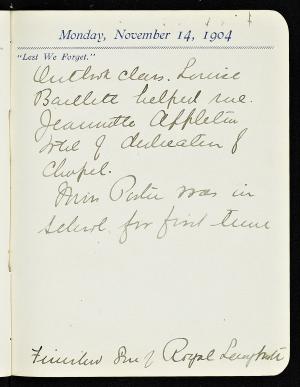 Monday, November 14, 1904
"Lest We Forget."
Outlook class. Louise
Bartlett helped me.
Jeannette Appleton
told of dedication of
Chapel.
Miss Porter was in
school for first time
Finished Son of Royal Langbrith